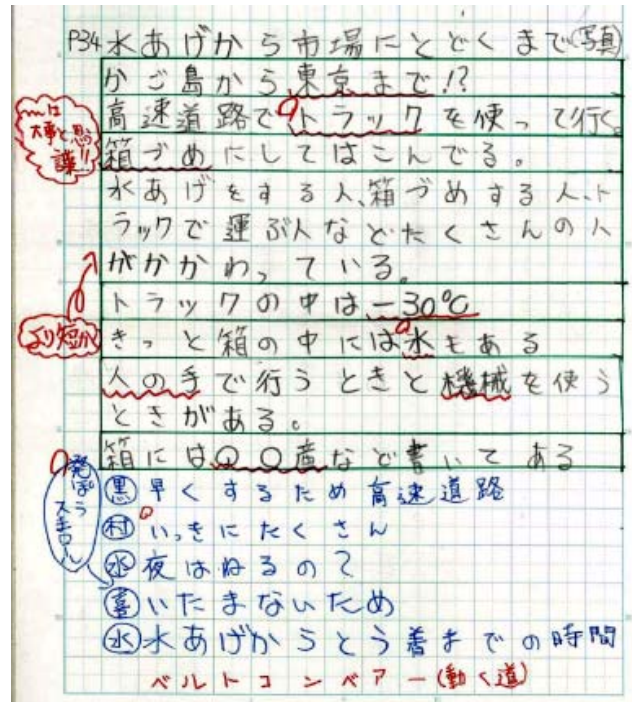 P34 水あげから市場にとどくまで(写真)
かご島から東京まで!?
高速道路でトラックを使って行く。
箱づめにしてはこんでる。
水あげをする人、箱づめする人、ト
ラックで運ぶ人などたくさんの人
がかかわっている。
トラックの中は-30℃
きっと箱の中には氷もある
人の手で行うときと機械を使う
ときがある。
箱には〇〇産など書いてある
〰は
大事と思う
より短かく
発ぽう
スチロール
黒 早くするため高速道路
村 いっきにたくさん
水 夜はねるの?
喜 いたまないため
水 水あげからとう着までの時間
ベルトコンベアー(動く道)